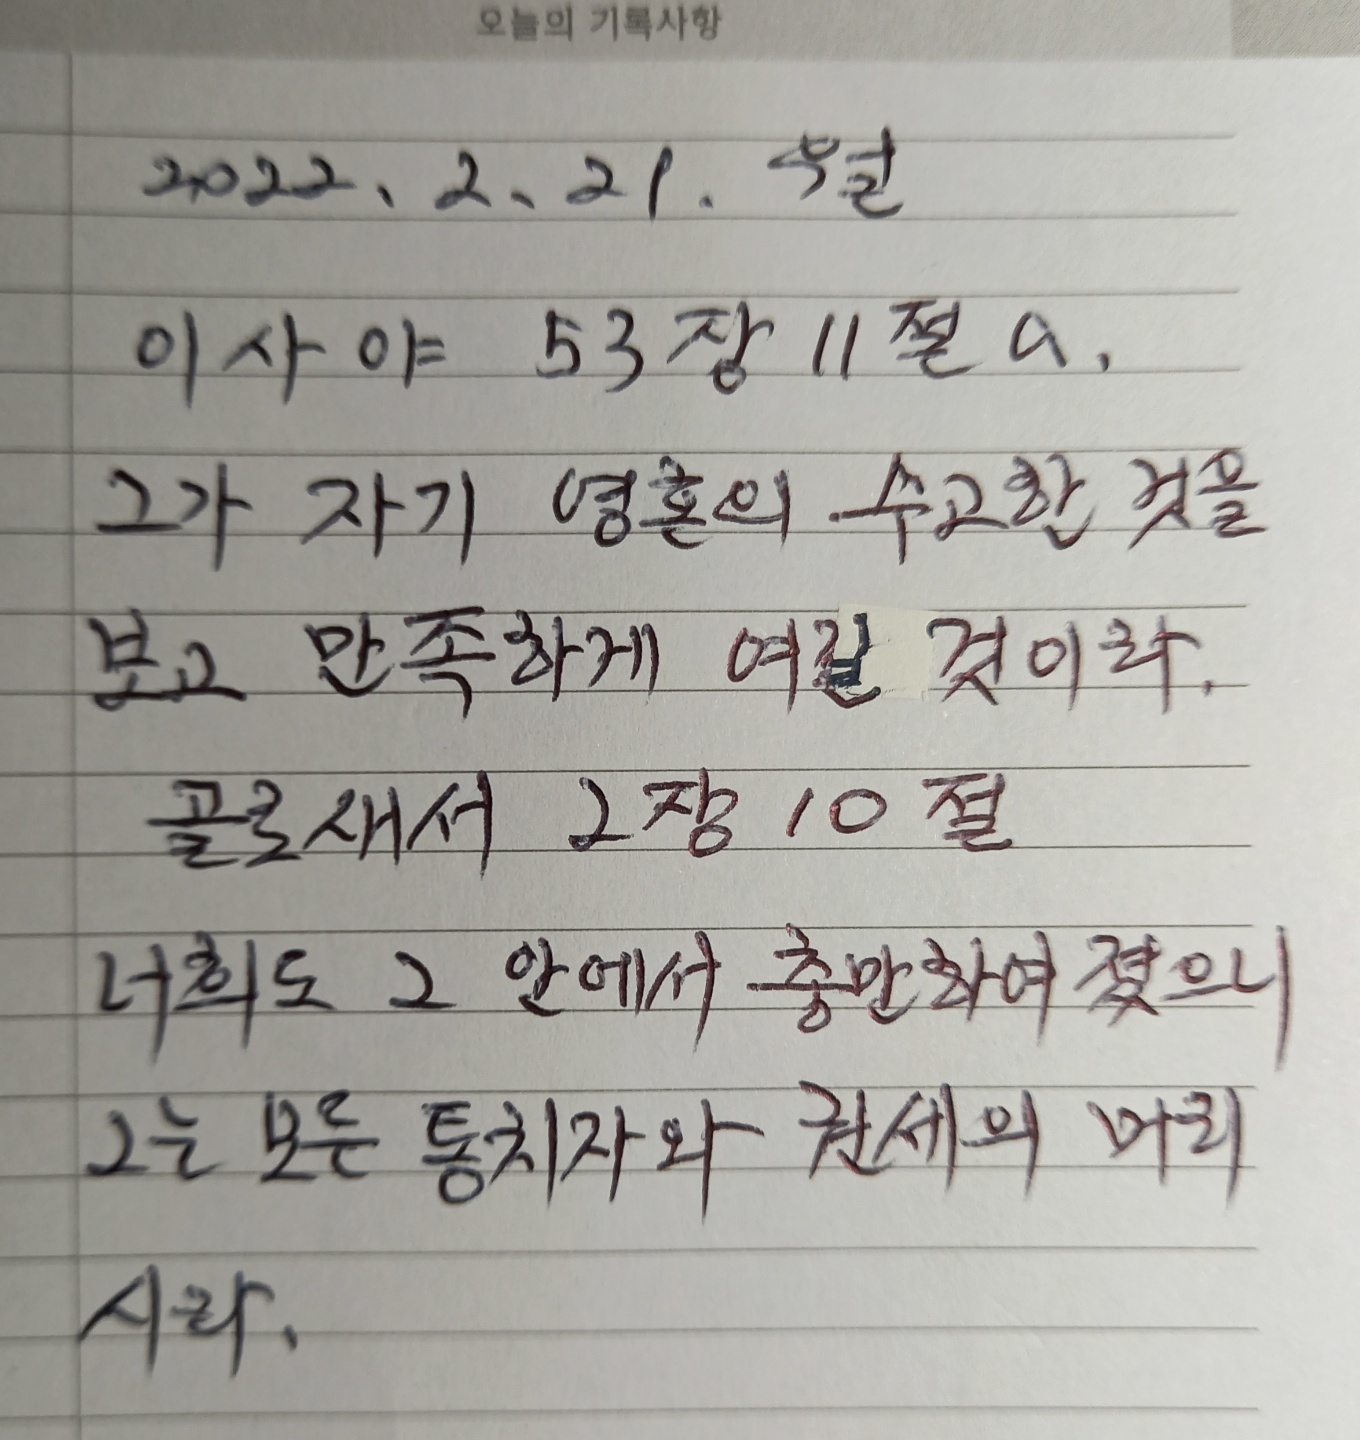 오늘의 기록사항
2022. 2. 21. 월
이사야 53장 11절 a.
그가 자기 영혼의 수고한 것을
보고 만족하게 여길 것이라.
골로새서 2장 10절
너희도 그 안에서 충만하여졌으니
그는 모든 통치자와 권세의 머리
시라.